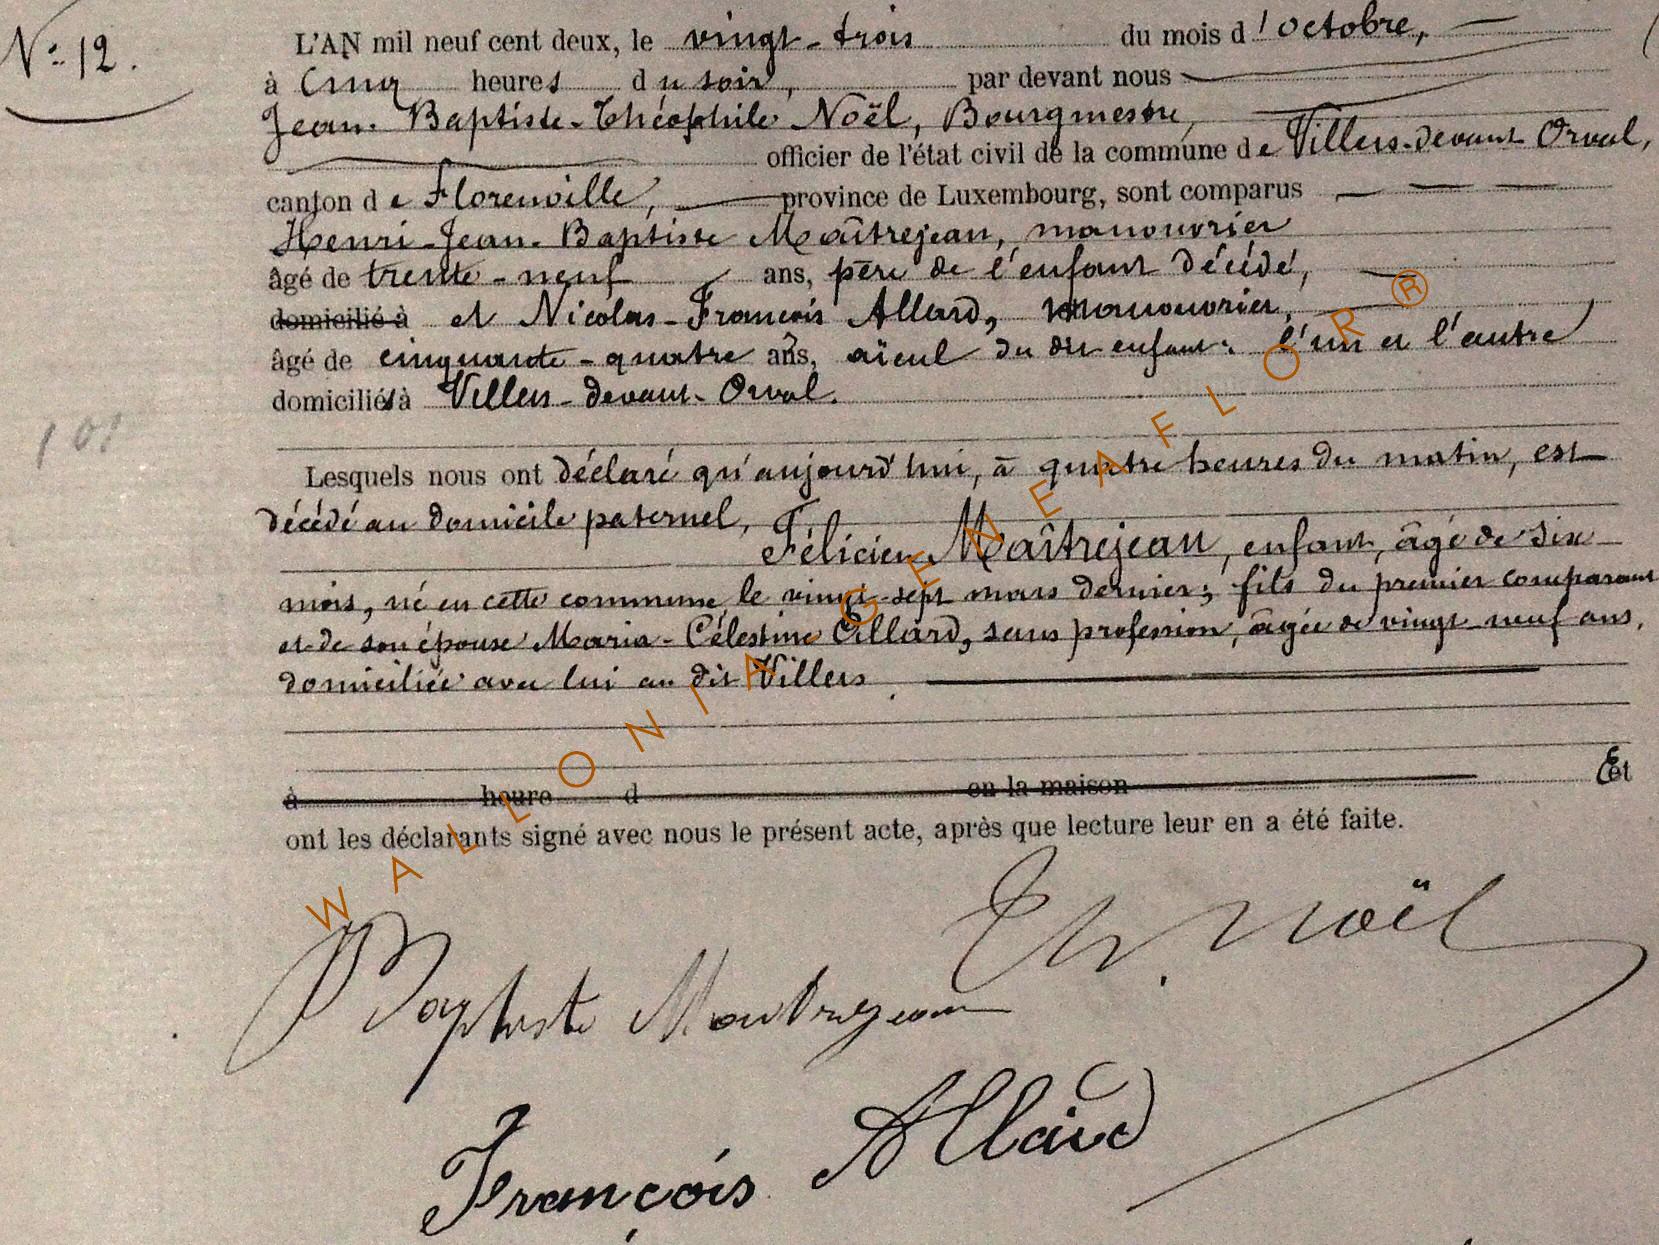 N.° 12.
L'AN mil neuf cent deux, le vingt-trois du mois d'octobre,
à Cinq heures du soir, par devant nous
Jean-Baptiste-Théophile Noël, Bourgmestre,
officier de l'état civil de la commune de Villers-devant-Orval,
canton de Florenville, province de Luxembourg, sont comparus
Henri-Jean-Baptiste Maîtrejean, manouvrier
âgé de trente-neuf ans, père de l'enfant décédé,
domicilié à et Nicolas-François Allard, manouvrier,
âgé de cinquante-quatre ans, aïeul du dit enfant: l'un et l'autre
domiciliés à Villers-devant-Orval.
101
Lesquels nous ont déclaré qu'aujourd'hui, à quatre heures du matin, est
décédé au domicile paternel,
Félicien Maîtrejean, enfant, âgé de six
mois, né en cette commune, le vingt-sept mars dernier; fils du premier comparant
et de son épouse Maria-Célestine Allard, sans profession, âgée de vingt-neuf ans,
domiciliée avec lui au dit Villers.
à heure d en la maison Et
ont les déclarants signé avec nous le présent acte, après que lecture leur en a été faite.
Th. Noël
Baptiste Maitrejean
François Allard
WALLONIA GENEAFLOR®